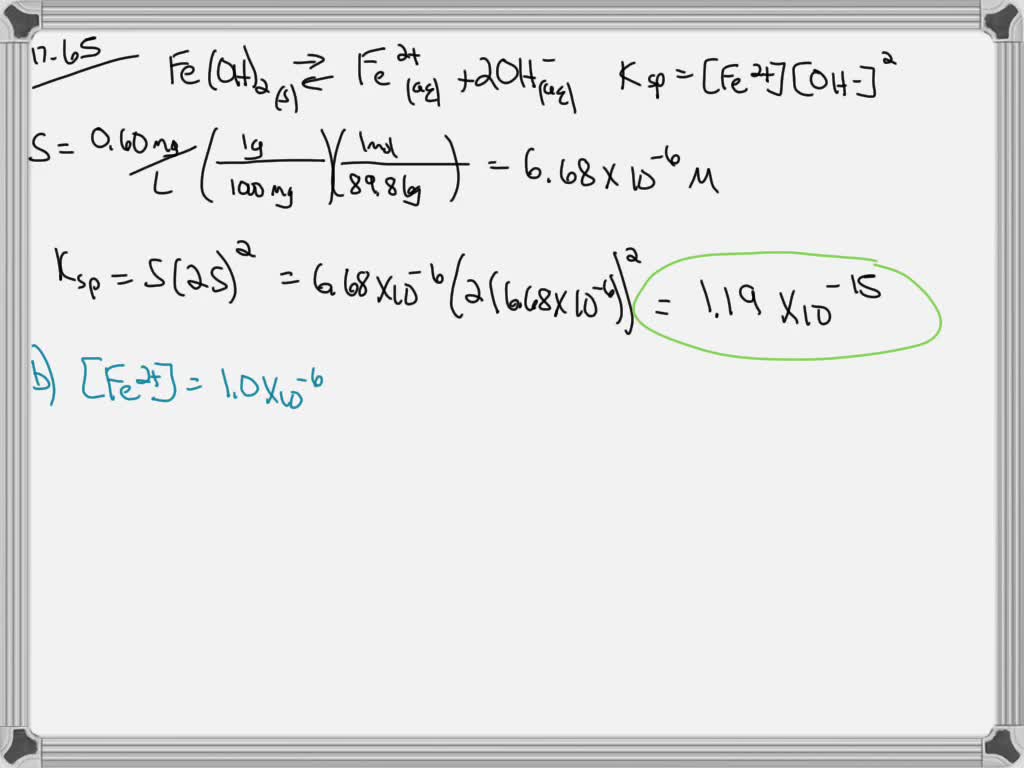 17.65
Fe(OH)₂(s) ⇌ Fe²⁺(aq) + 2OH⁻(aq) Ksp = [Fe²⁺][OH-]²
S = 0.60 mg/L (1g/1000 mg)(1mol/89.86g) = 6.68 × 10⁻⁶ M
Ksp = S(2S)² = 6.68×10⁻⁶(2(6.68×10⁻⁶))² = 1.19 ×10⁻¹⁵
b) [Fe²⁺] = 1.0×10⁻⁶